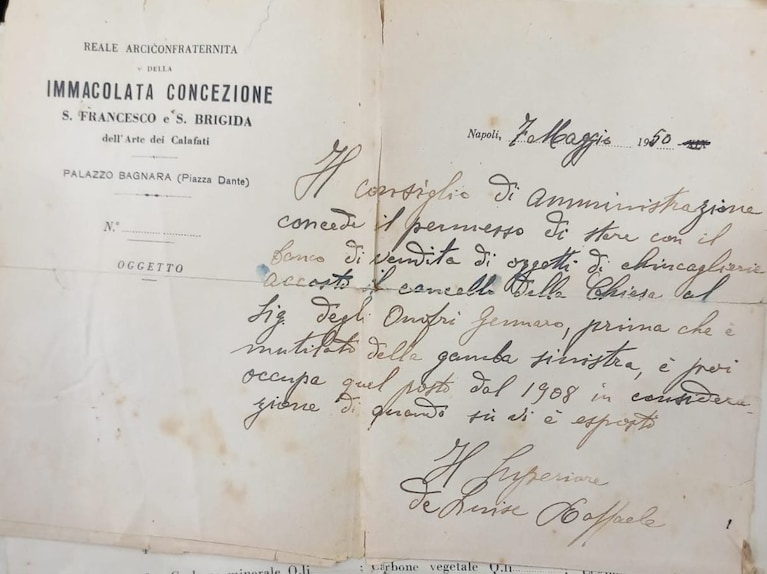 REALE ARCICONFRATERNITA
DELLA
IMMACOLATA CONCEZIONE
S. FRANCESCO e S. BRIGIDA
dell'Arte dei Calafati
PALAZZO BAGNARA (Piazza Dante)
N.°
OGGETTO
Napoli, 7 Maggio 1950
Il consiglio di amministrazione
concede il permesso di stare con il
banco di vendita di oggetti di chincaglierie
accosto il cancello della Chiesa al
Sig. degli Onofri Gennaro, prima che è
mutilato della gamba sinistra, è poi
occupa quel posto dal 1908 in considera-
zione di quando su vi è esposto
Il Superiore
de Luise Raffaele
minerale Q.li : Carbone vegetale Q.li